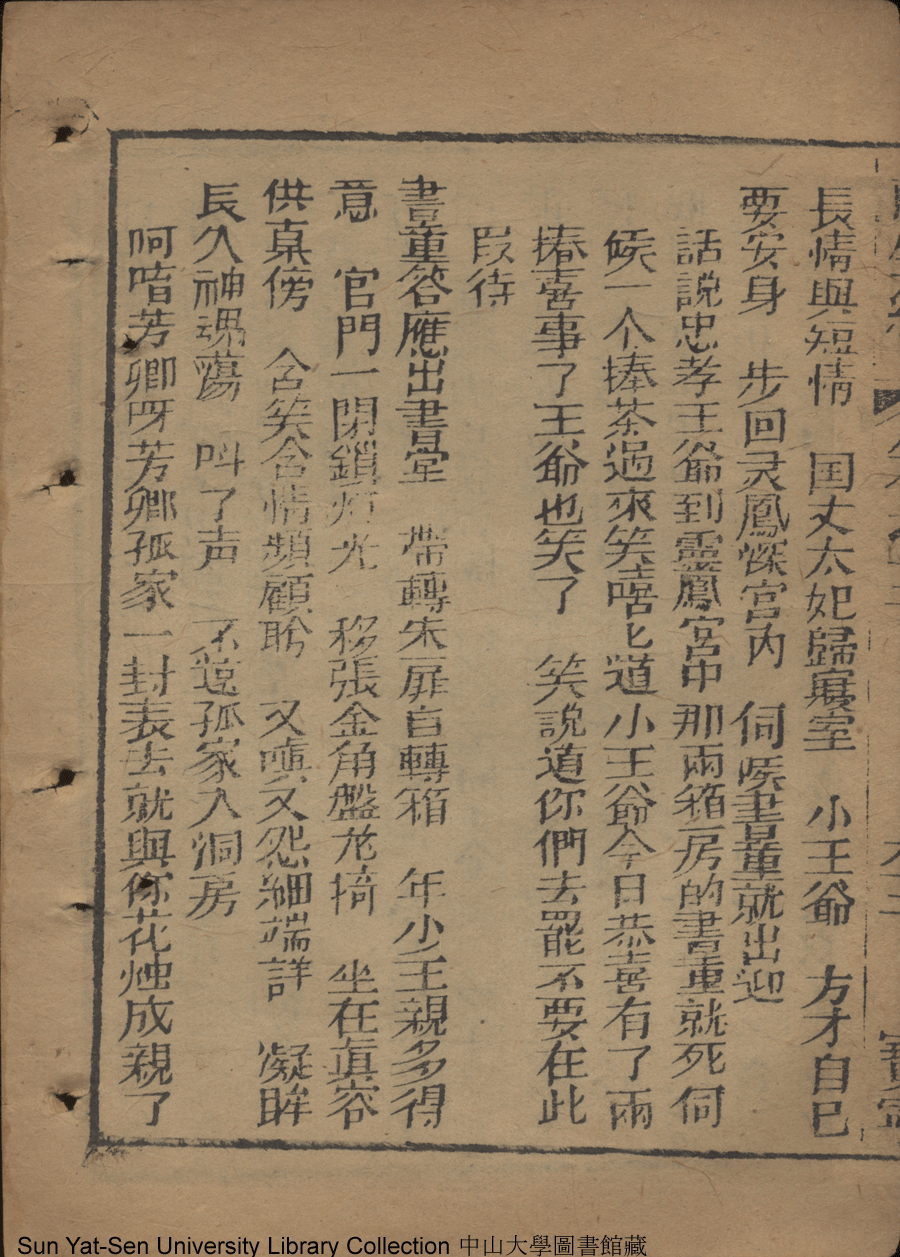 長情與短情　国丈太妃歸寢室　小王爺　方才自己
要安身　步回灵鳳深宮内　伺候書童就出迎
話說忠孝王爺到靈鳳宮中那兩箱房的書童就死伺
候一个捧茶過來笑嘻匕道小王爺今日恭喜有了兩
椿喜事了王爺也笑了　笑說道你們去罷不要在此
叚待
書童答應出書堂　帶轉朱扉自轉箱　年少王親多得
意　官門一閉鎖灯光　移張金角盤龙掎　坐在眞容
供桌傍　含笑含情頻顧盻　又嗔又怨細端詳　凝眸
長久神魂蕩　叫了声　不遠孤家入洞房
呵唷芳卿呀芳卿孤家一封表去就與你花烛成親了
Sun Yat-Sen University Library Collection 中山大學圖書館藏